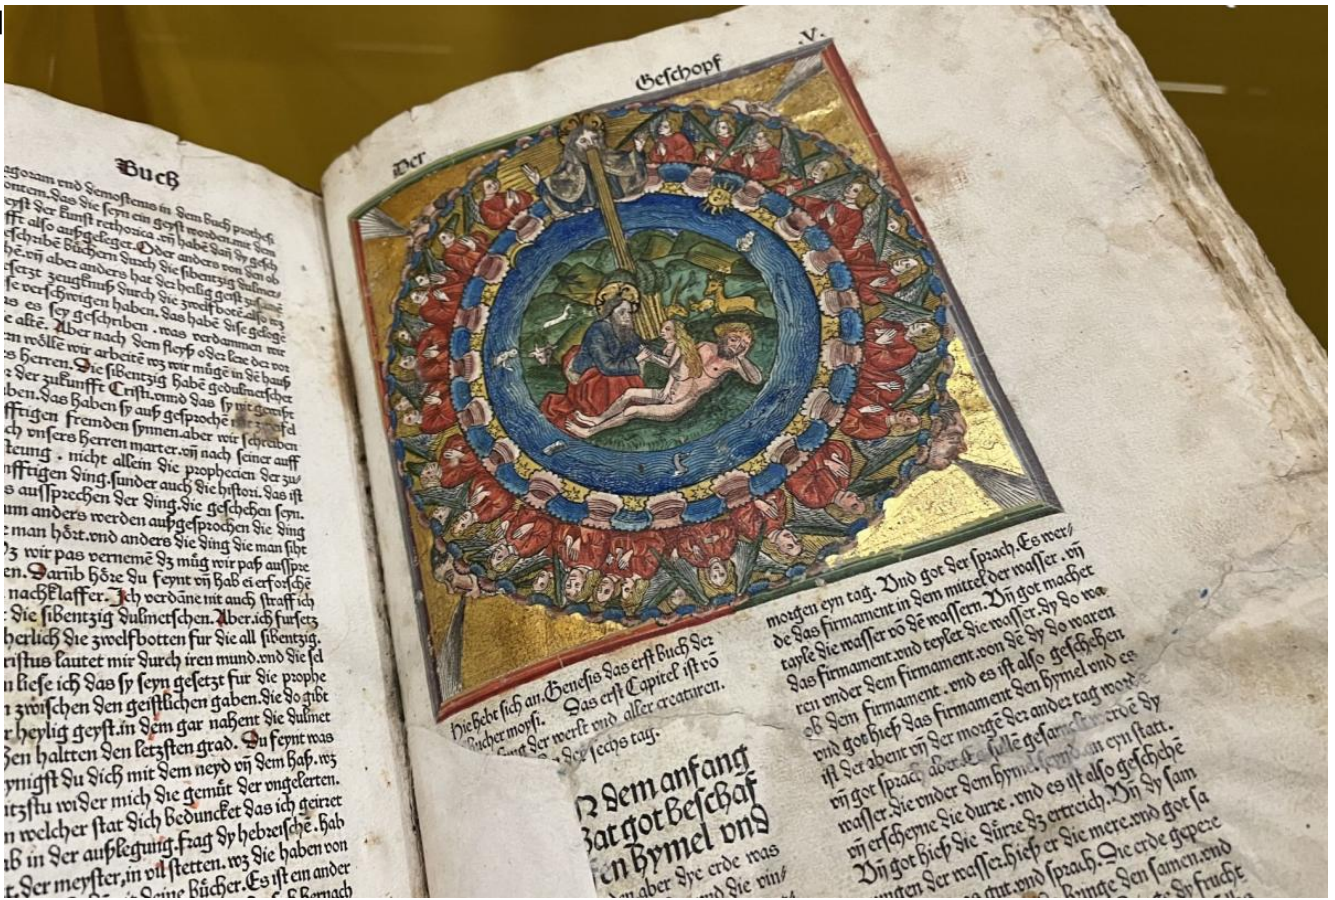 Buch
agoram vnd demostenis in dem buch prothesi
ontem. das die seyn ein geyst worden. mit dem
eyst der kunst rethorica. vn̄ habē dañ dy gesch
fft also außgeleget. Oder anders von den ob
eschribē büchern durch die sibentzig dulmets
hē. vn̄ aber anders hat der heilig geist zusamē
gesetzt zeugknuß durch die zwelfbotē. also wz
se verschwigen haben. das habē dise geloge
as es sey geschriben. was verdammen wir
e altē. Aber nach dem fleyß oder lere der vor
en wöllē wir arbeitē wz wir mügē in dē hauß
s Herren. Die sibentzig habē gedulmetschet
r der zukunfft Cristi. vnnd das sy nit gewißt
ben. das haben sy auß gesprochē mit
fftigen fremden synnen. aber wir schreiben
ch vnsers herren marter. vn̄ nach seiner auff
steung. nicht allein die prophecien der zu⸗
nfftigen ding. sunder auch die histori. das ist
s aussprechen der ding. die geschehen seyn.
um anders werden außgesprochen die ding
e man hört. vnd anders die ding die man siht
z wir pas vernemē dz müg wir paß ausspre
en. Darüb höre du feynt vn̄ hab ei erforschē
nachklaffer. Ich verdāne nit auch straff ich
die sibentzig dulmetschen. Aber. ich fursetz
herlich die zwelfbotten fur die all sibentzig.
ristus lautet mir durch iren mund. vnd die sel
n liese ich das sy seyn gesetzt fur die prophe
n zwischen den geistlichen gaben. die do gibt
r heylig geyst. in dem gar nahent die dulmet
en haltten den letzsten grad. Du feynt was
ynigst du dich mit dem neyd vn̄ dem haß. wz
itzstu wider mich die gemüt der vngelerten.
n welcher stat dich beduncket das ich geirret
b in der außlegung. frag dy hebreischē. hab
t. der meyster, in vil stetten. wz die haben von
deine bücher. Es ist ein ander
Der Geschopf .V.
Hie hebt sich an. Genesis das erst buch der
bucher moysi. Das erst Capitel ist vō
der werlt vnd aller creaturen.
der sechs tag.
N dem anfang
hat got beschaf
en hymel vnd
den aber dye erde was
vnd die vin⸗
morgen eyn tag. Vnd got der sprach. Es wer⸗
de das firmament in dem mittel der wasser. vn̄
tayle die wasser vō dē wassern. Vn̄ got machet
das firmament. vnd teylet die wasser. dy do wa⸗
ren vnder dem firmament. von dē dy do waren
ob dem firmament. vnd es ist also geschehen
vnd got hieß das firmament den hymel vnd es
ist der abent vn̄ der morgē der ander tag worde
vn̄ got sprach aber. Es süllē gesamelt werdē dy
wasser. die vnder dem hymel seynd an eyn statt.
vn̄ erscheyne die durre. vnd es ist also geschehē
Vn̄ got hieß die dürre dz ertreich. Vn̄ dy sam
ungen der wasser. hieß er die mere. vnd got sa
gut. vnd sprach. Die erde gepere
bringe den samen. vnd
dy frucht